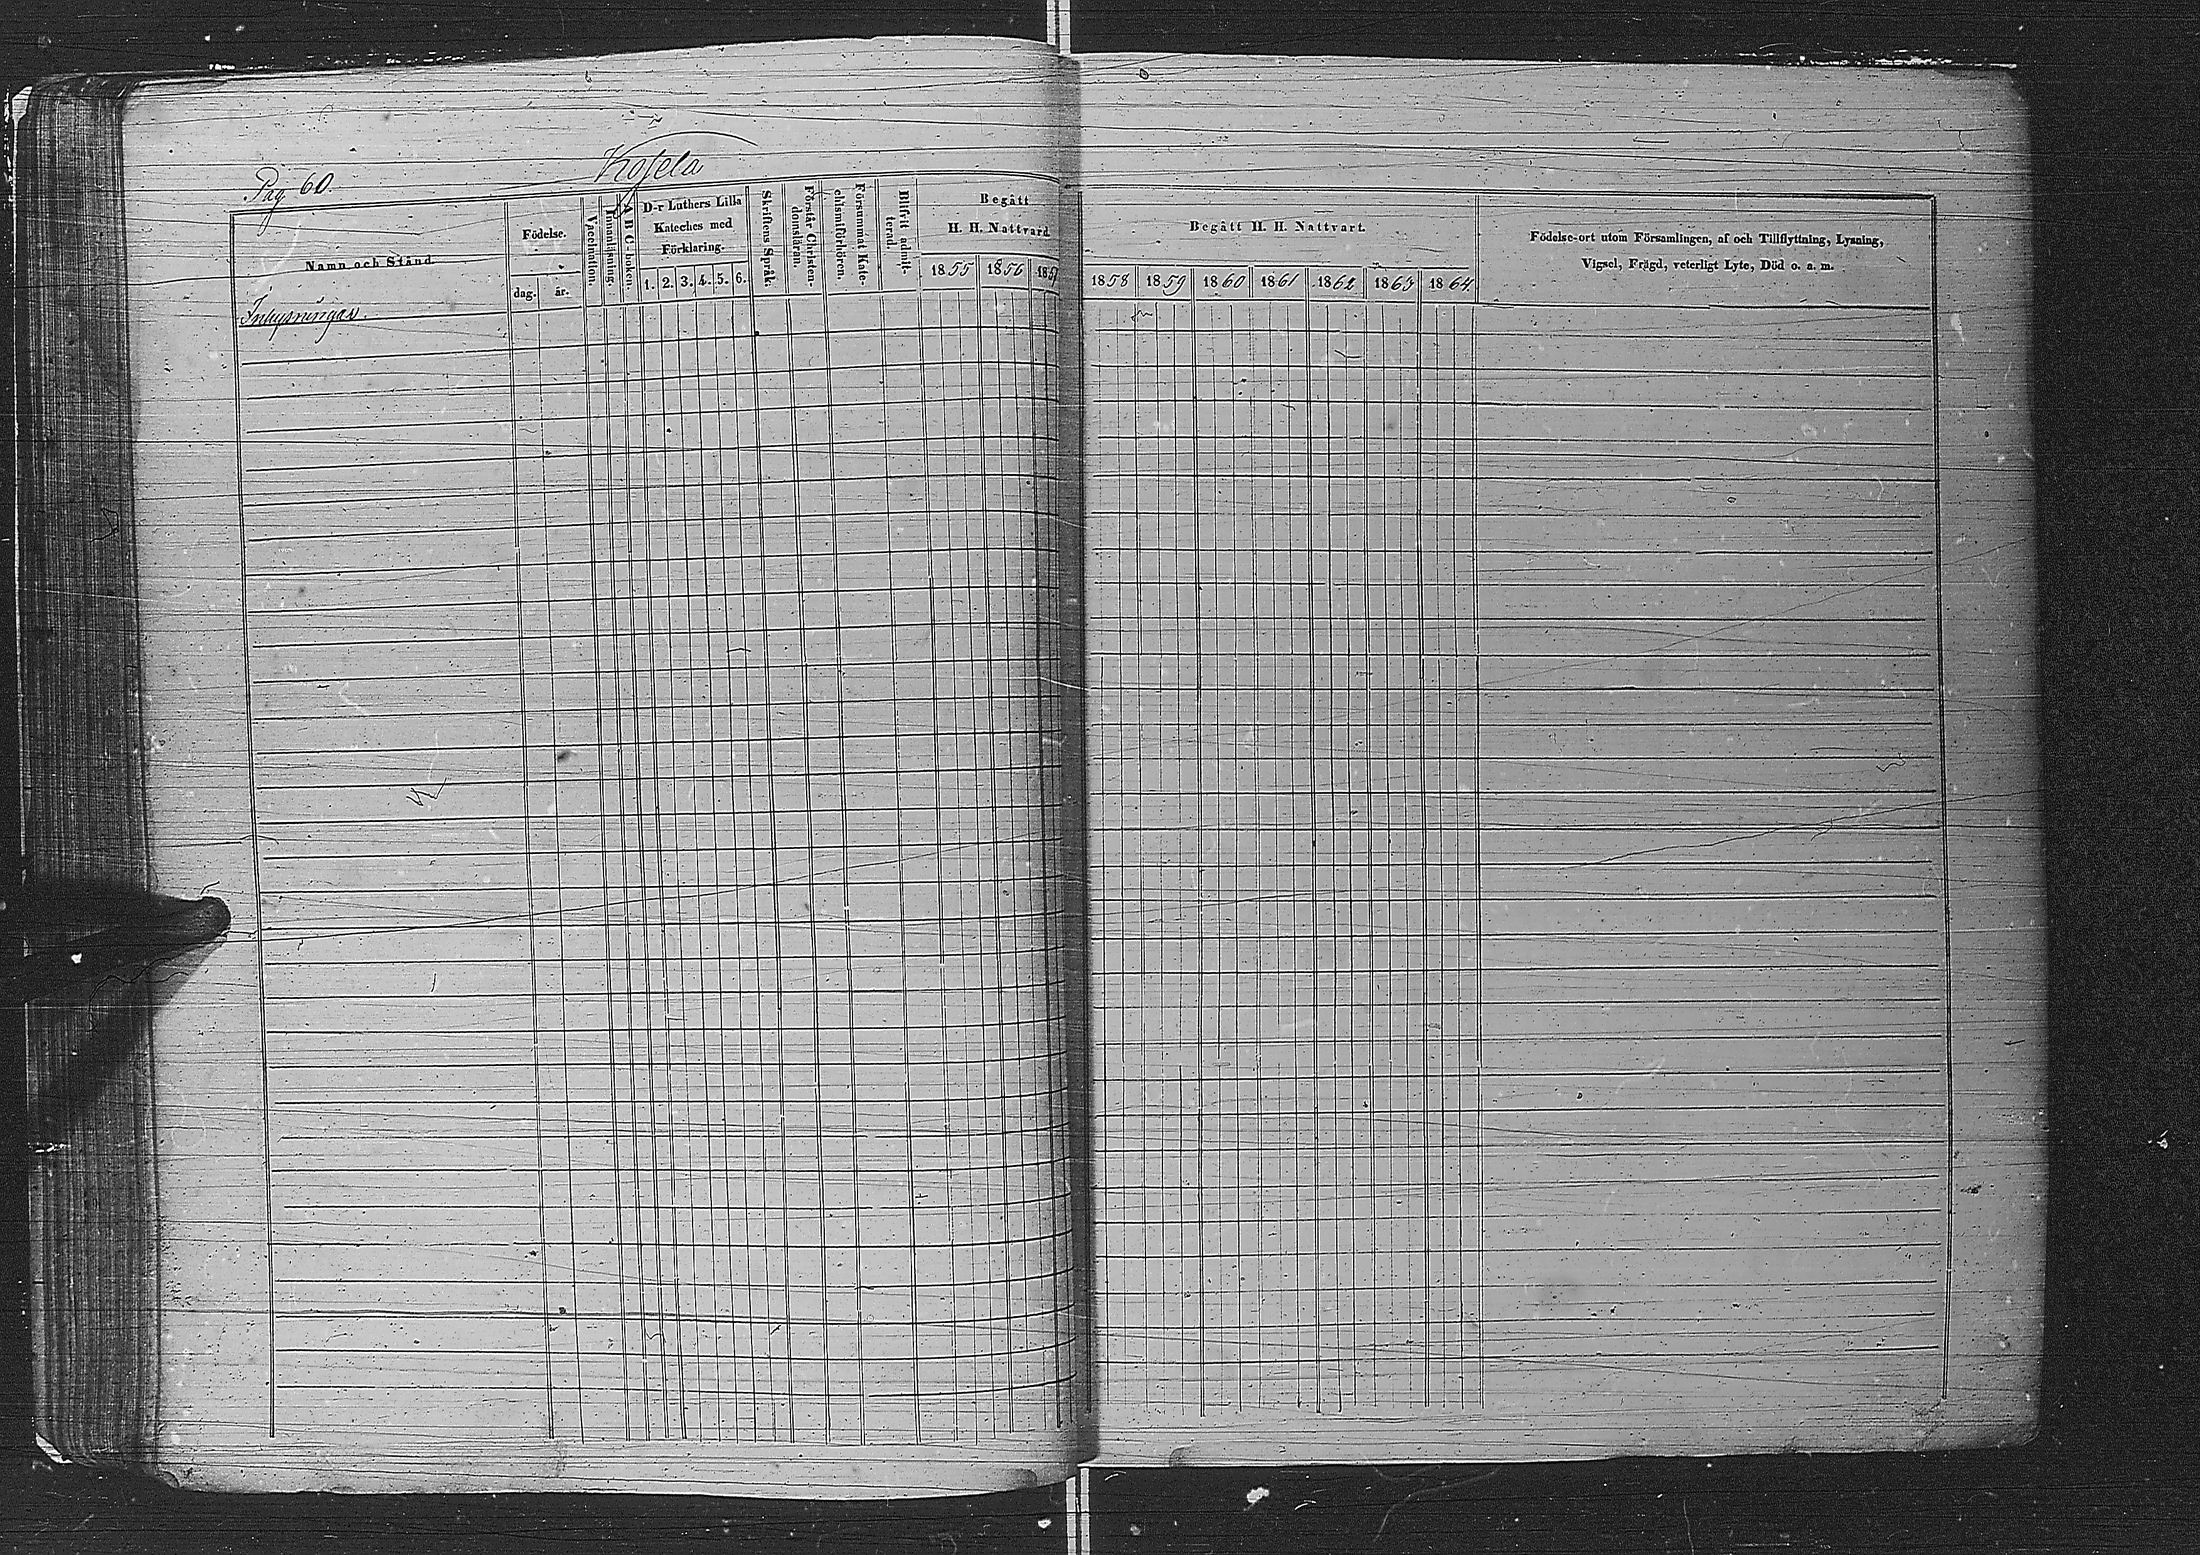 Pag. 60.
Kosela
Namn och Stånd.
Födelse.
dag.
år.
Vaccination.
Innanläsning.
A B C-boken.
D-r Luthers Lilla
Kateches med
Förklaring.
1. 2. 3. 4. 5. 6.
Skriftens Språk.
Förstår Christen-
domsläran.
Försummat Kate-
chismiförhören.
Blifvit admit-
terad.
Begått
H. H. Nattvard.
1855 1856 1857
Inhysningar.
Begått H. H. Nattvart.
1858 1859 1860 1861 1862 1863 1864
Födelse-ort utom Församlingen, af och Tillflyttning, Lysning,
Vigsel, Frägd, veterligt Lyte, Död o. a. m.